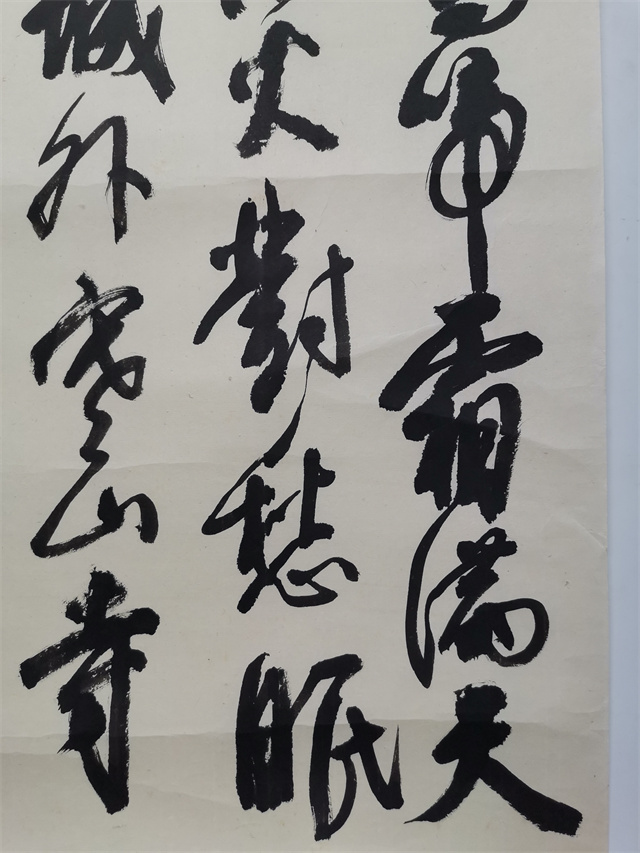 啼霜滿天
火對愁眠
城外寒山寺